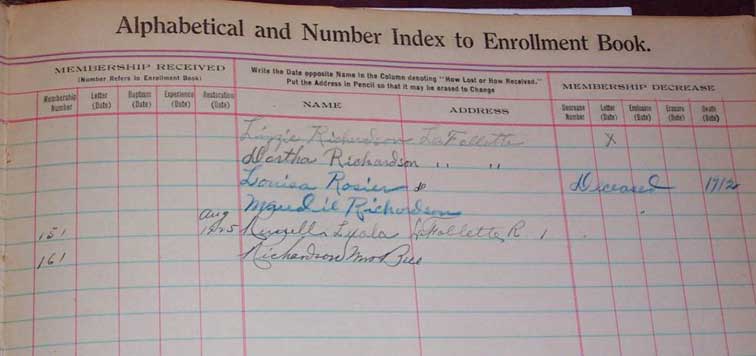 Alphabetical and Number Index to Enrollment Book.
MEMBERSHIP RECEIVED
(Number Refers to Enrollment Book)
Write the Date opposite Name in the Column denoting "How Lost or How Received."
Put the Address in Pencil so that it may be erased to Change
MEMBERSHIP DECREASE
Membership Number
Letter (Date)
Baptism (Date)
Experience (Date)
Restoration (Date)
NAME
ADDRESS
Decrease Number
Letter (Date)
Exclusion (Date)
Erasure (Date)
Death (Date)
Lizzie Richardson LaFollette X
Martha Richardson " "
Louisa Rosier Deceased 1912
Maudie Richardson
151 Aug 1925 Lyala LaFollette R. 1
161 Richardson Mrs Bill